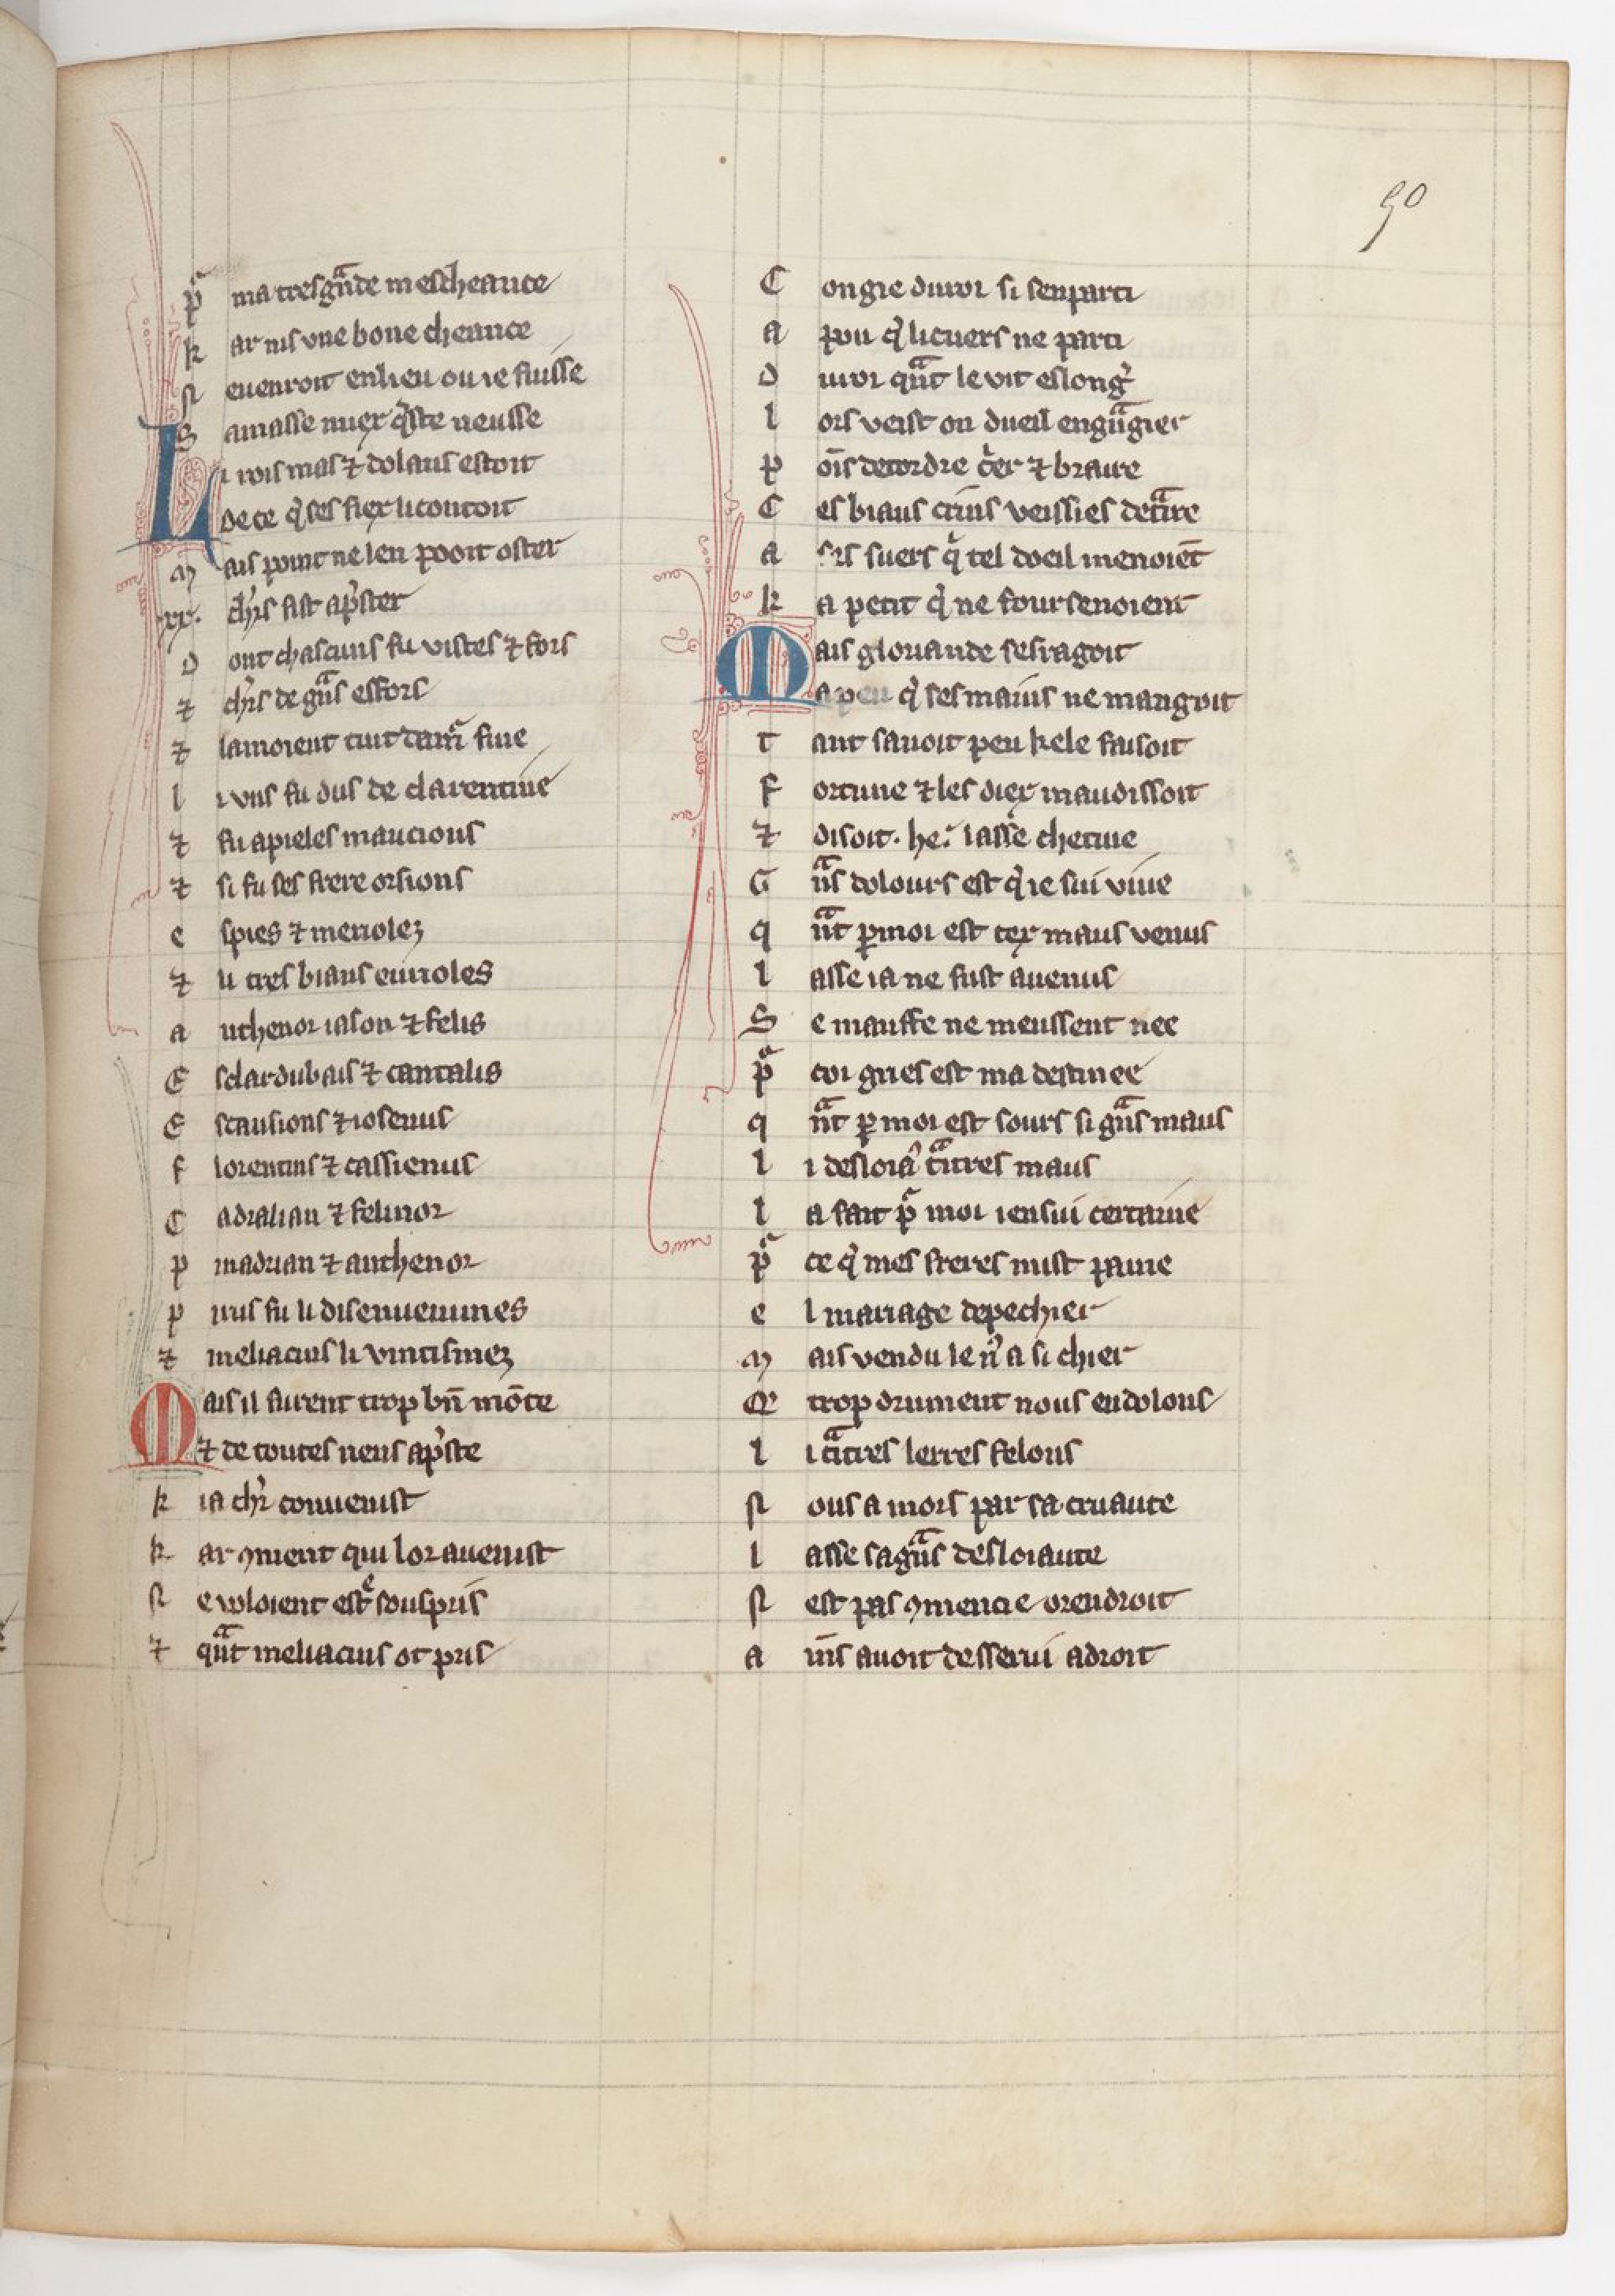 50
pͣ ma tres gͣnde mescheance
k ar nis vne bone cheance
n euenroit en lieu ou ie fuisse
S amasse miex q̉ste neusse
Li rois mas ⁊ dolans estoit
De ce q̉ ses fiex li contoit
m ais point ne len pooit oster
xx. chrs̉ fist ap̉ster
D ont chascuns fu vistes ⁊ fors
⁊ chrs̉ de gͣns effors
⁊ lamoient tuit damͬ fine
l i vns fu dus de clarentine
⁊ fu apieles maucions
⁊ si fu ses frere orsions
e spies ⁊ meriolez
⁊ li tres biaus eurioles
a nthenor iason ⁊ felis
E sclardubais ⁊ cantalis
E scausions ⁊ iosenus
f lorentins ⁊ cassienus
C adralian ⁊ felinor
p madrian ⁊ anthenor
p irus fu li disenueuimes
⁊ meliacius li vintismez
Mais il furent trop bn̄ mōte
⁊ de toutes riens ap̉ste
k ia chr̉ conuenist
k ar ꝯment qui lor auenist
n e voloient estͤ souspris
⁊ qͣnt meliacius ot pris
C ongie dwor si senparti
a pou q̉ li cuers ne parti
D iuor qͣnt le vit eslong̉
l ors veist on dueil engͣngier
p oīs detordre c̉er ⁊ braire
C es biaus crins veissies detͣire
a ses suers q̉ tel doeil menoiēt
k a petit q̉ ne foursenoient
Mais gloriande sesragoit
a peu q̉ ses mains ne mangoit
t ant sauoit peu kele faisoit
f ortune ⁊ les diex maudissoit
⁊ disoit. he. lasse chetiue
G ͣns dolours est q̉ ie sui viue
q ͣnt ꝑ moi est tex maus venus
l asse ia ne fust auenus
S e mauffe ne meussent nee
pͣ coi gries est ma destinee
q ͣnt ꝑ moi est sours si gͣns maus
l i desloiaͬ tͣitres maus
l a fait pͬ moi iensui certaine
pͣ ce q̉ mes freres mist paine
e l mariage depechier
m ais vendu le nͬ a si chier
Q trop durement nous en dolons
l i tͣitres lerres felons
n ous a mors par sa cruaute
l asse sa gͣns desloiaute
n est pas ꝯmencie orendroit
a īns auoit desserui adroit